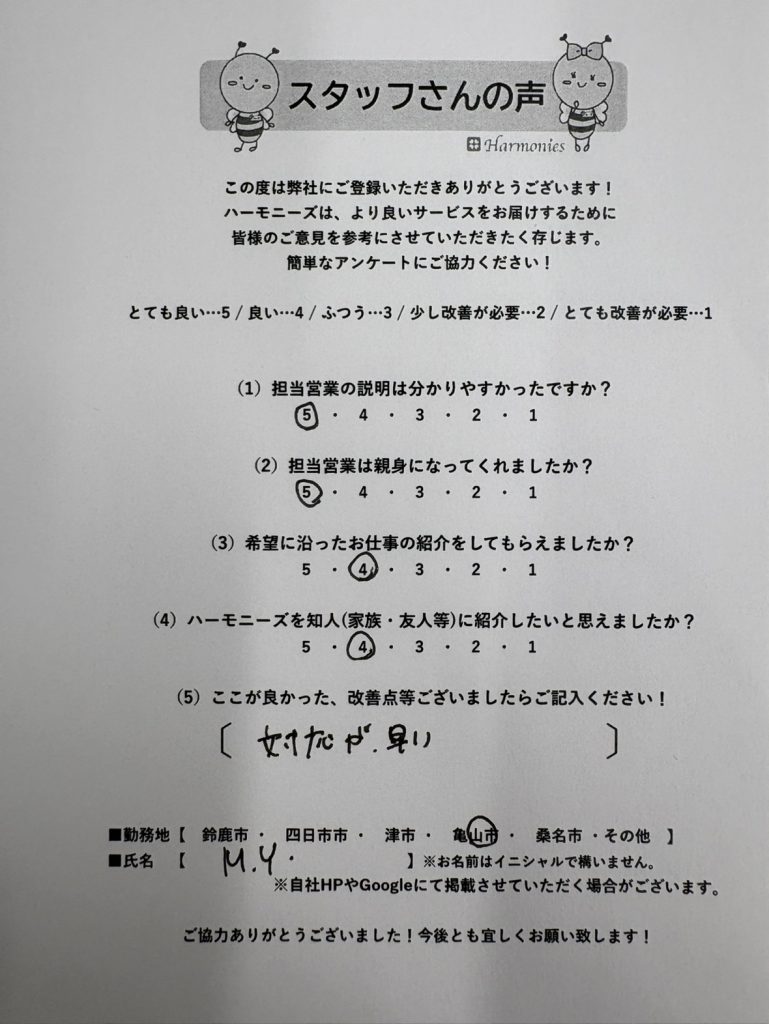 スタッフさんの声
Harmonies
この度は弊社にご登録いただきありがとうございます!
ハーモニーズは、より良いサービスをお届けするために
皆様のご意見を参考にさせていただきたく存じます。
簡単なアンケートにご協力ください!
とても良い…5 / 良い…4 / ふつう…3 / 少し改善が必要…2 / とても改善が必要…1
(1)担当営業の説明は分かりやすかったですか?
5 ・ 4 ・ 3 ・ 2 ・ 1
(2)担当営業は親身になってくれましたか?
5 ・ 4 ・ 3 ・ 2 ・ 1
(3)希望に沿ったお仕事の紹介をしてもらえましたか?
5 ・ 4 ・ 3 ・ 2 ・ 1
(4)ハーモニーズを知人(家族・友人等)に紹介したいと思えましたか?
5 ・ 4 ・ 3 ・ 2 ・ 1
(5)ここが良かった、改善点等ございましたらご記入ください!
〔 対応が、早い 〕
■勤務地【 鈴鹿市 ・ 四日市市 ・ 津市 ・ 亀山市 ・ 桑名市 ・その他 】
■氏名 【 M.Y. 】※お名前はイニシャルで構いません。
※自社HPやGoogleにて掲載させていただく場合がございます。
ご協力ありがとうございました!今後とも宜しくお願い致します!